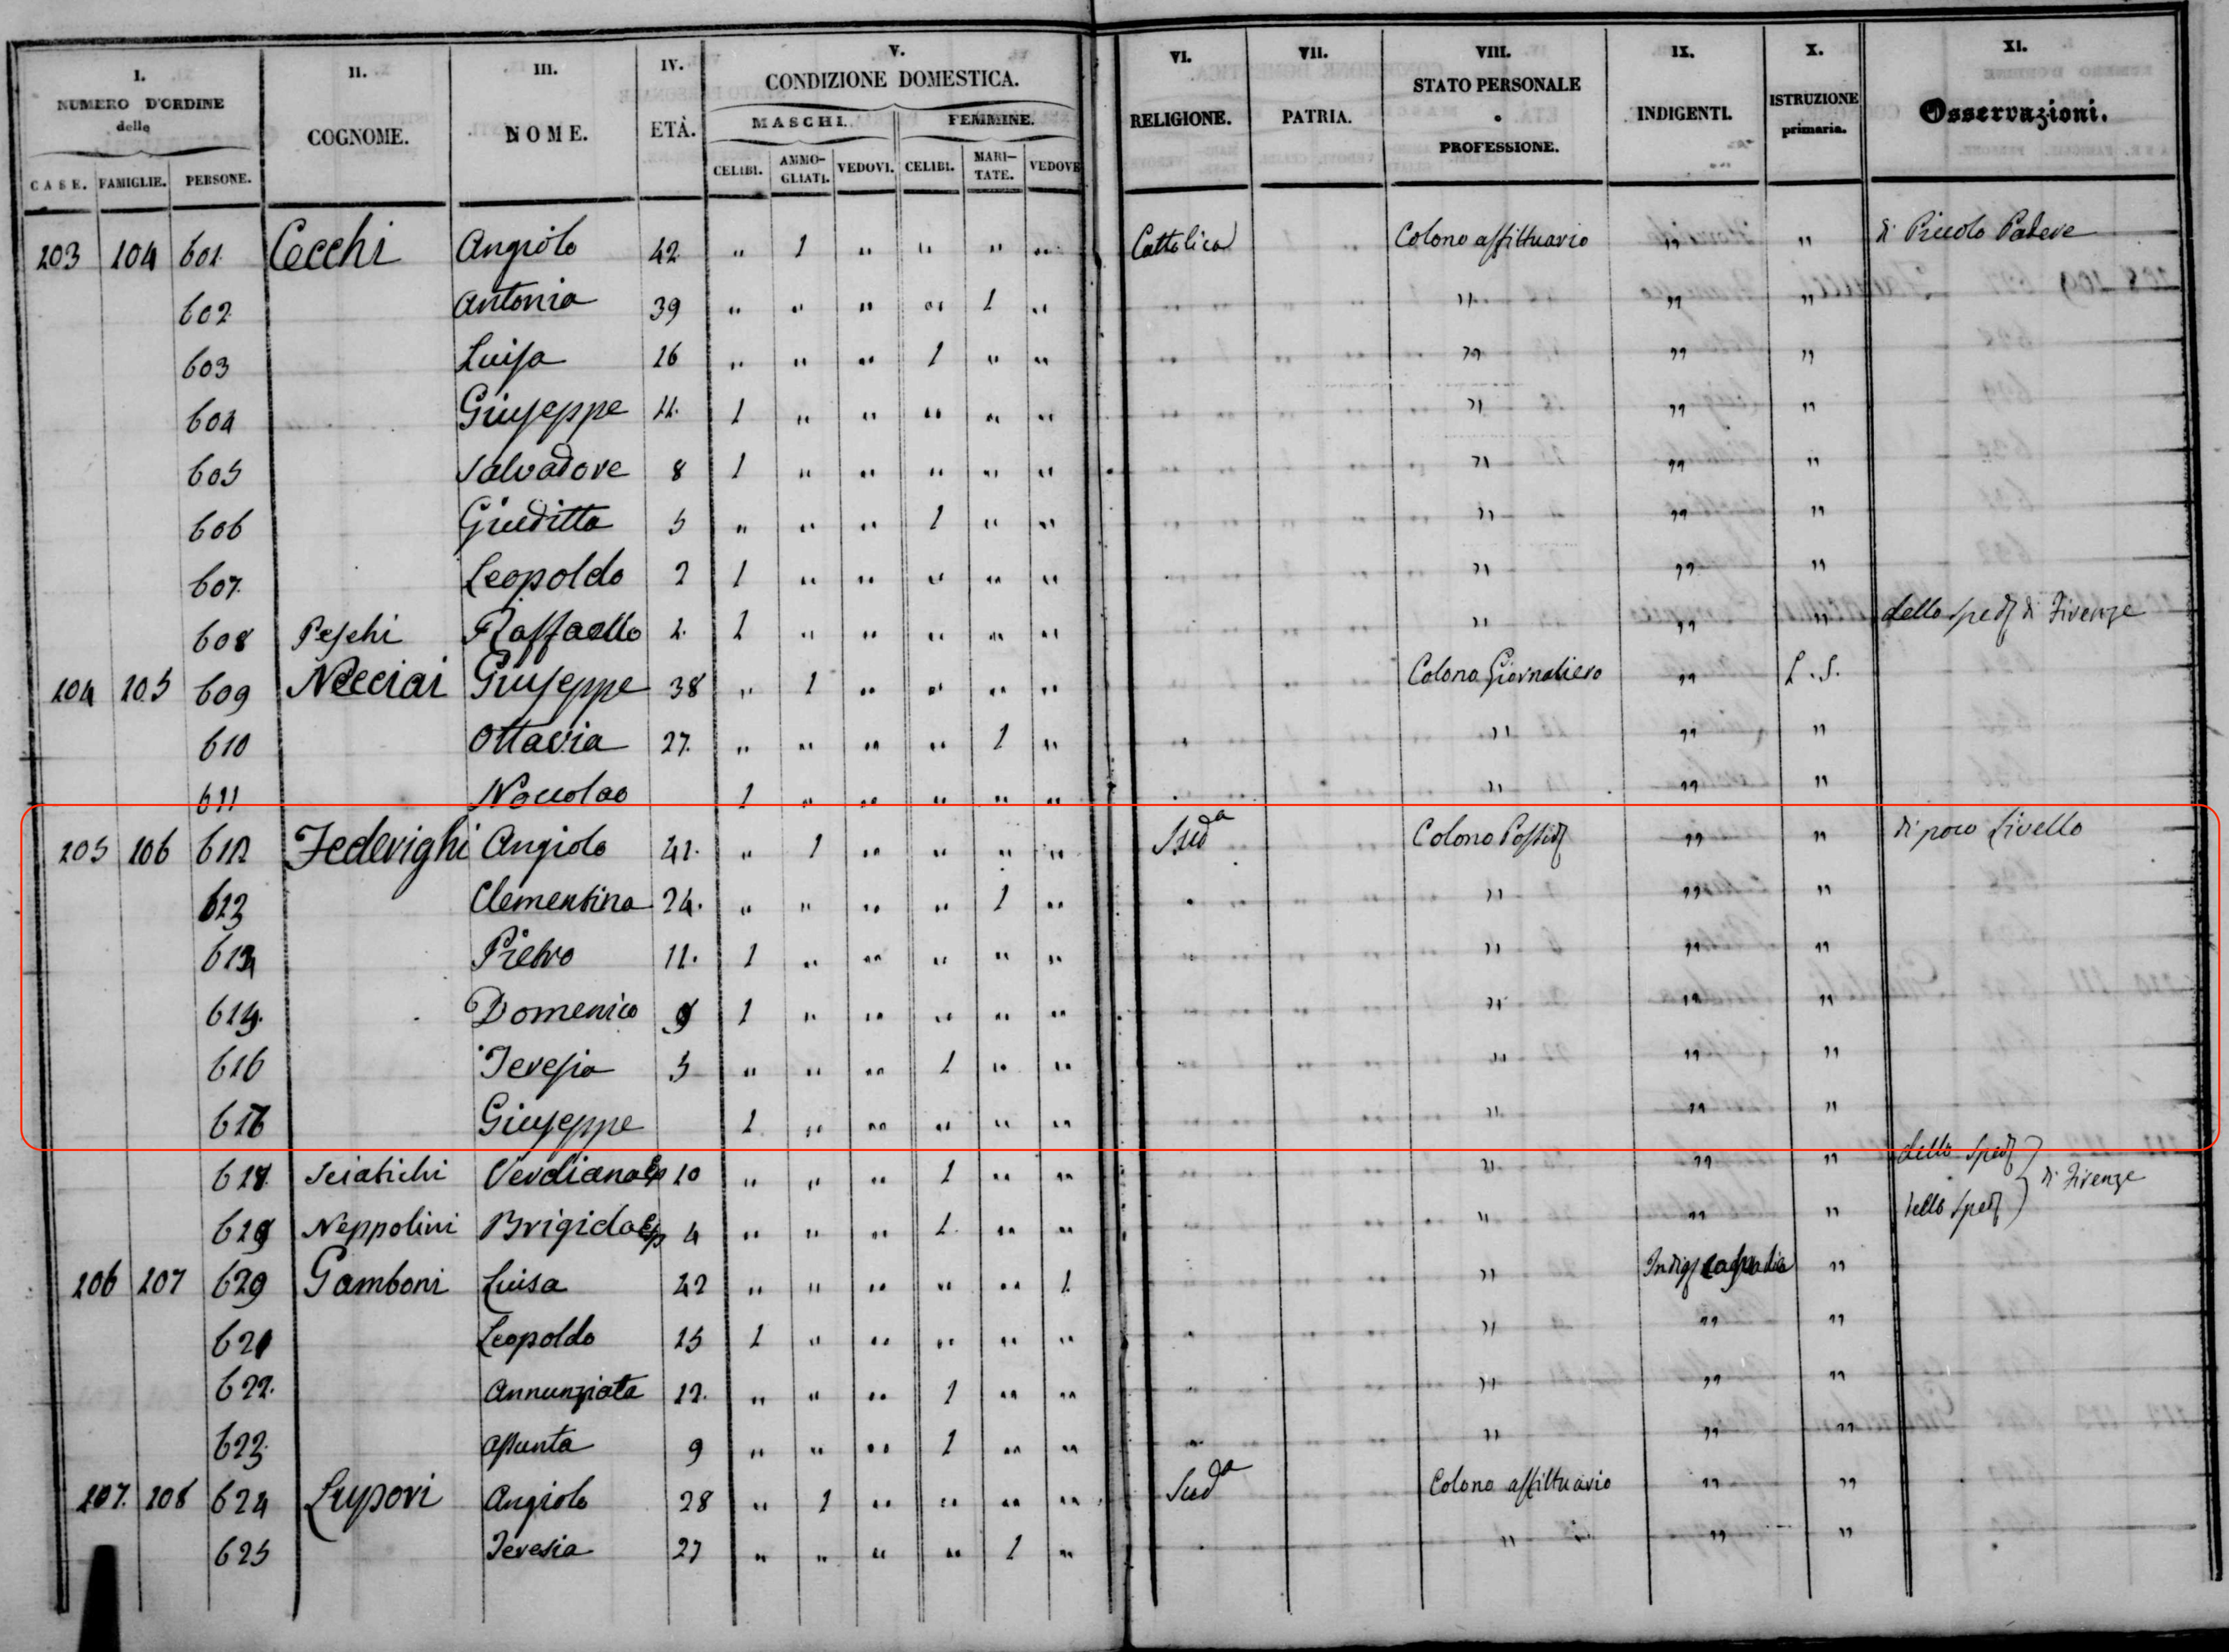 I. II. III. IV. V. VI. VII. VIII. IX. X. XI.
NUMERO D'ORDINE delle COGNOME. NOME. ETÀ. CONDIZIONE DOMESTICA. RELIGIONE. PATRIA. STATO PERSONALE o PROFESSIONE. INDIGENTI. ISTRUZIONE primaria. Osservazioni.
MASCHI. FEMMINE.
CASE. FAMIGLIE. PERSONE. CELIBI. AMMO-GLIATI. VEDOVI. CELIBI. MARI-TATE. VEDOVE
103 104 601 Cecchi Angiolo 42 " 1 " " " " Cattolica Colono affittuario " " di Piccolo Podere
602 Antonia 39 " " " " 1 " " " "
603 Luisa 16 " " " 1 " " " " "
604 Giuseppe 11. 1 " " " " " " " "
605 Salvadore 8 1 " " " " " " " "
606 Giuditta 5 " " " 1 " " " " "
607. Leopoldo 2 1 " " " " " " " "
608 Peschi Raffaello 1. 1 " " " " " " " " dello Sped di Firenze
104 105 609 Necciai Giuseppe 38 " 1 " " " " Colono Giornaliero " L. S.
610 Ottavia 27. " " " " 1 " " " "
611 Niccolao 1 " " " " " " " "
105 106 612 Federighi Angiolo 41. " 1 " " " " Sudª Colono Possid " " di poco Livello
613 Clementina 24. " " " " 1 " " " "
Pietro 11. 1 " " " " " " " "
Domenico 9 1 " " " " " " " "
616 Teresia 5 " " " 1 " " " " "
Giuseppe 1 " " " " " " " "
618. Verdiana Esp 10 " " " 1 " " " " " dello Sped
619 Neppolini Brigida Esp 4 " " " 1. " " " " " dello Sped } di Firenze
106 107 620 Gamboni Luisa 42 " " " " " 1 " Indig "
621 Leopoldo 15 1 " " " " " " " "
622. Annunziata 12. " " " 1 " " " " "
623. Assunta 9 " " " 1 " " " " "
107. 108 624 Lupori Angiolo 28 " 1 " " " " Sudª Colono affittuario " "
625 Teresia 27 " " " " 1 " " " "